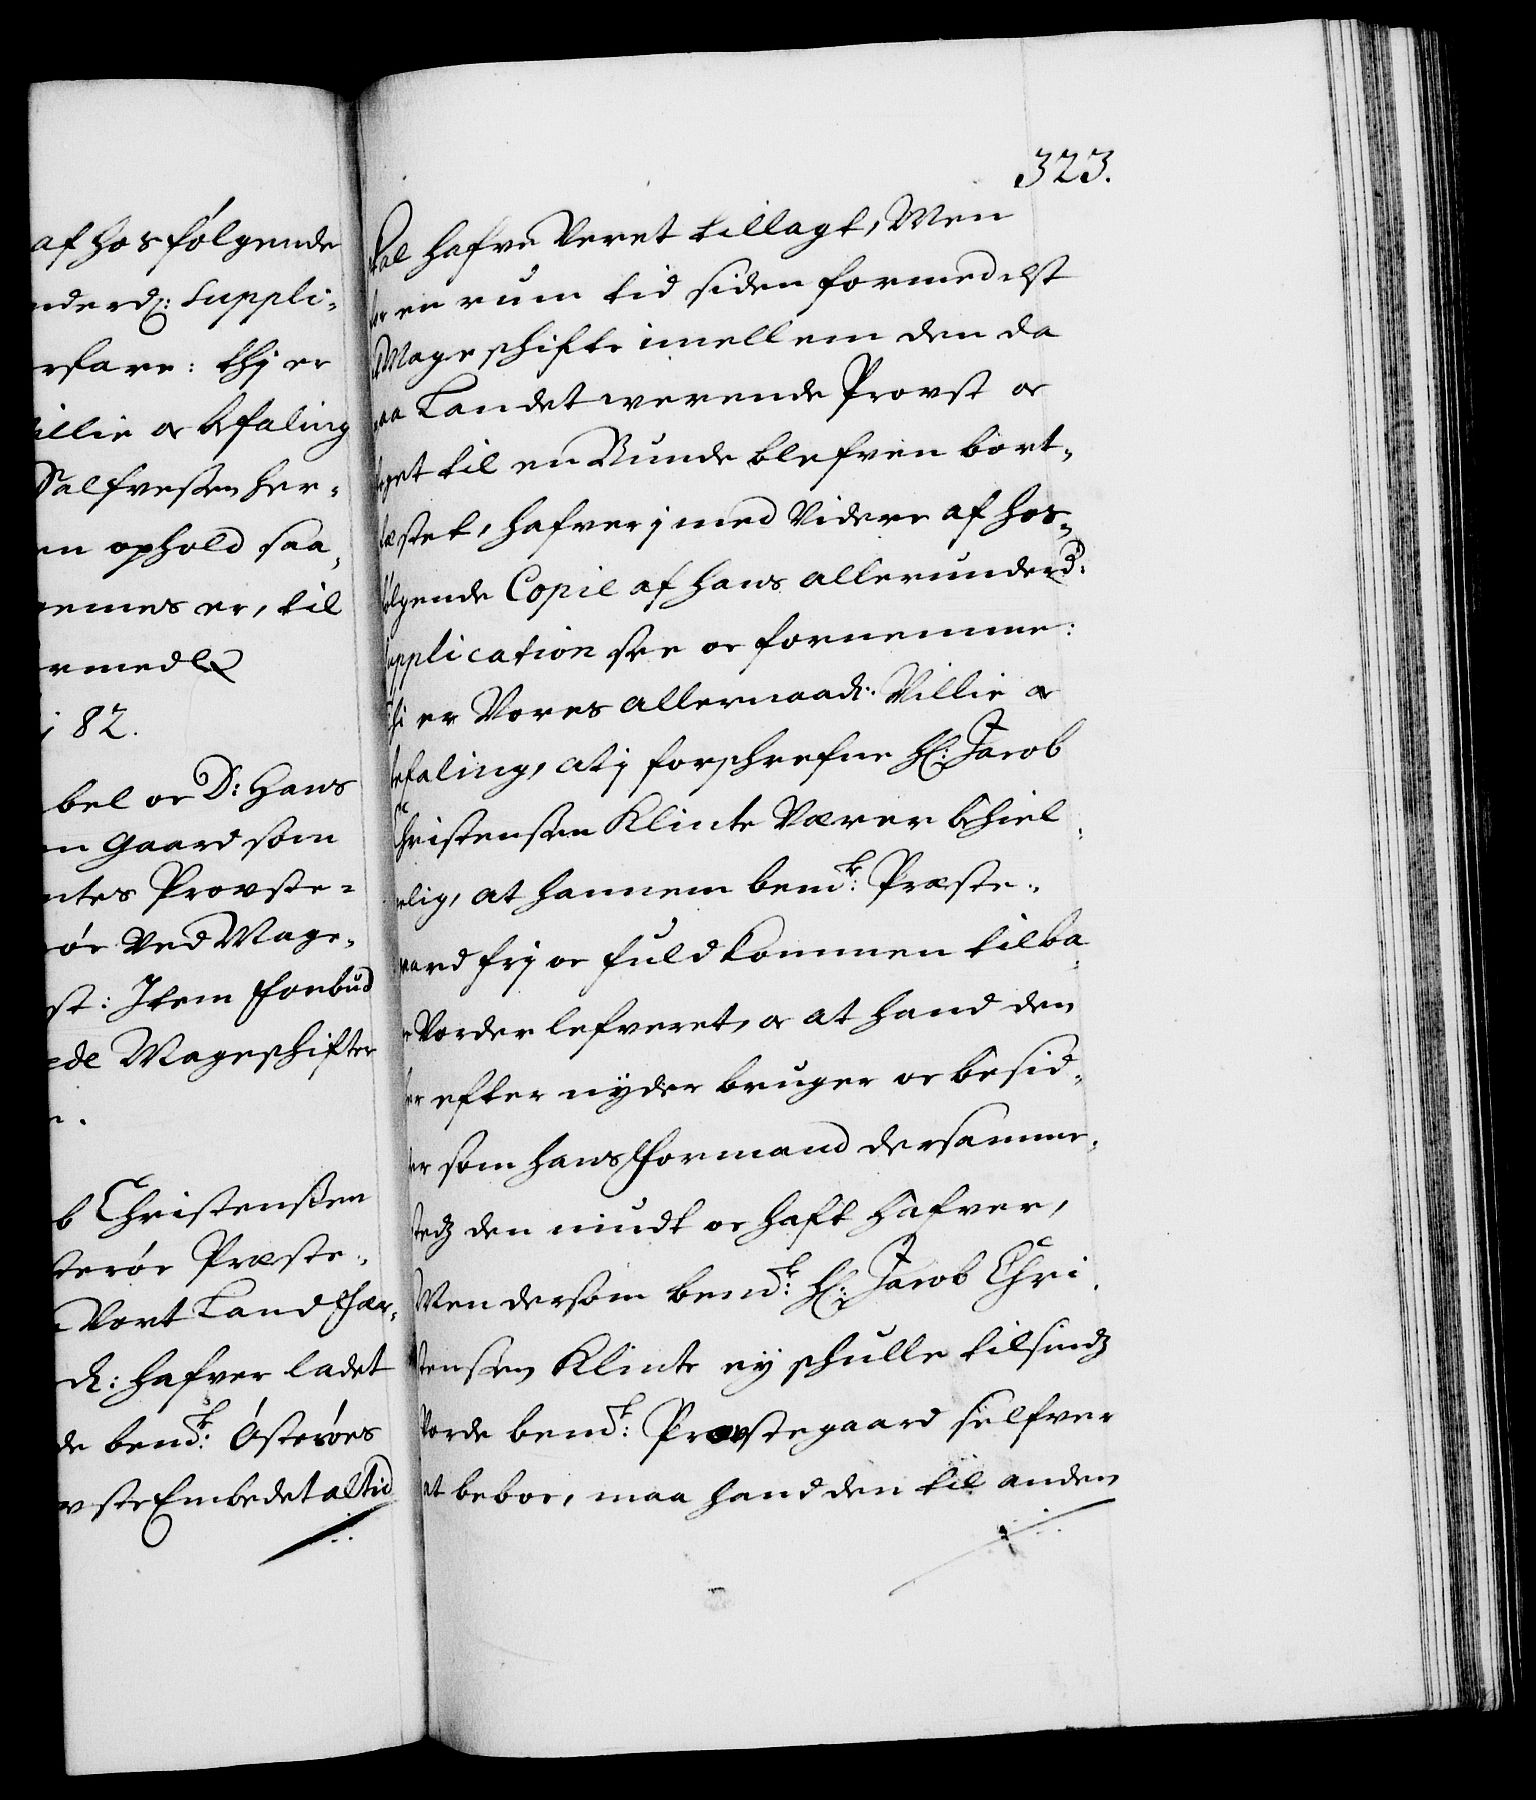 af hosfølgende
nderd: suppli-
rfare: thj er
illie oc befaling
Salfvesen her-
en ophold saa-
nemes er, til
rmedlr
j 82.
bel oc D: Hans
n Gaard som
ntes Provste-
öe Ved Mage-
st: Item forbud
ede Mageschifter
b Christensen
sterøe Præste-
Vort Land Fær-
d: hafver ladet
de bemt: Österöes
vste Embedet altid
323.
kal hafve Veret tillagt, Men
for en rum tid siden formedelst
Mageschifte imellem den da
paa Landet werende Provst oc
get til en Bunde blefven bort-
fæstet, hafver j med Videre af hos-
fölgende Copie af hans allerunderd:
supplication see oc fornemme:
Thi er Vores allernaad: Villie oc
befaling, at j forschrefne H: Jacob
Christensen Klinte Værer behiel-
pelig, at hannem bemt: Præste-
gaard frj oc fuldkommen tilba-
ge Vorder lefveret, oc at hand den
her efter nyder bruger oc besid-
der som hans Formand dersamme-
stedz den niudt oc haft hafver,
Men dersom bemt: H: Jacob Chri-
stensen Klinte ej schulle tilsindz
Vorde bemt: Provstegaard self ver
at beboe, maa hand den til anden